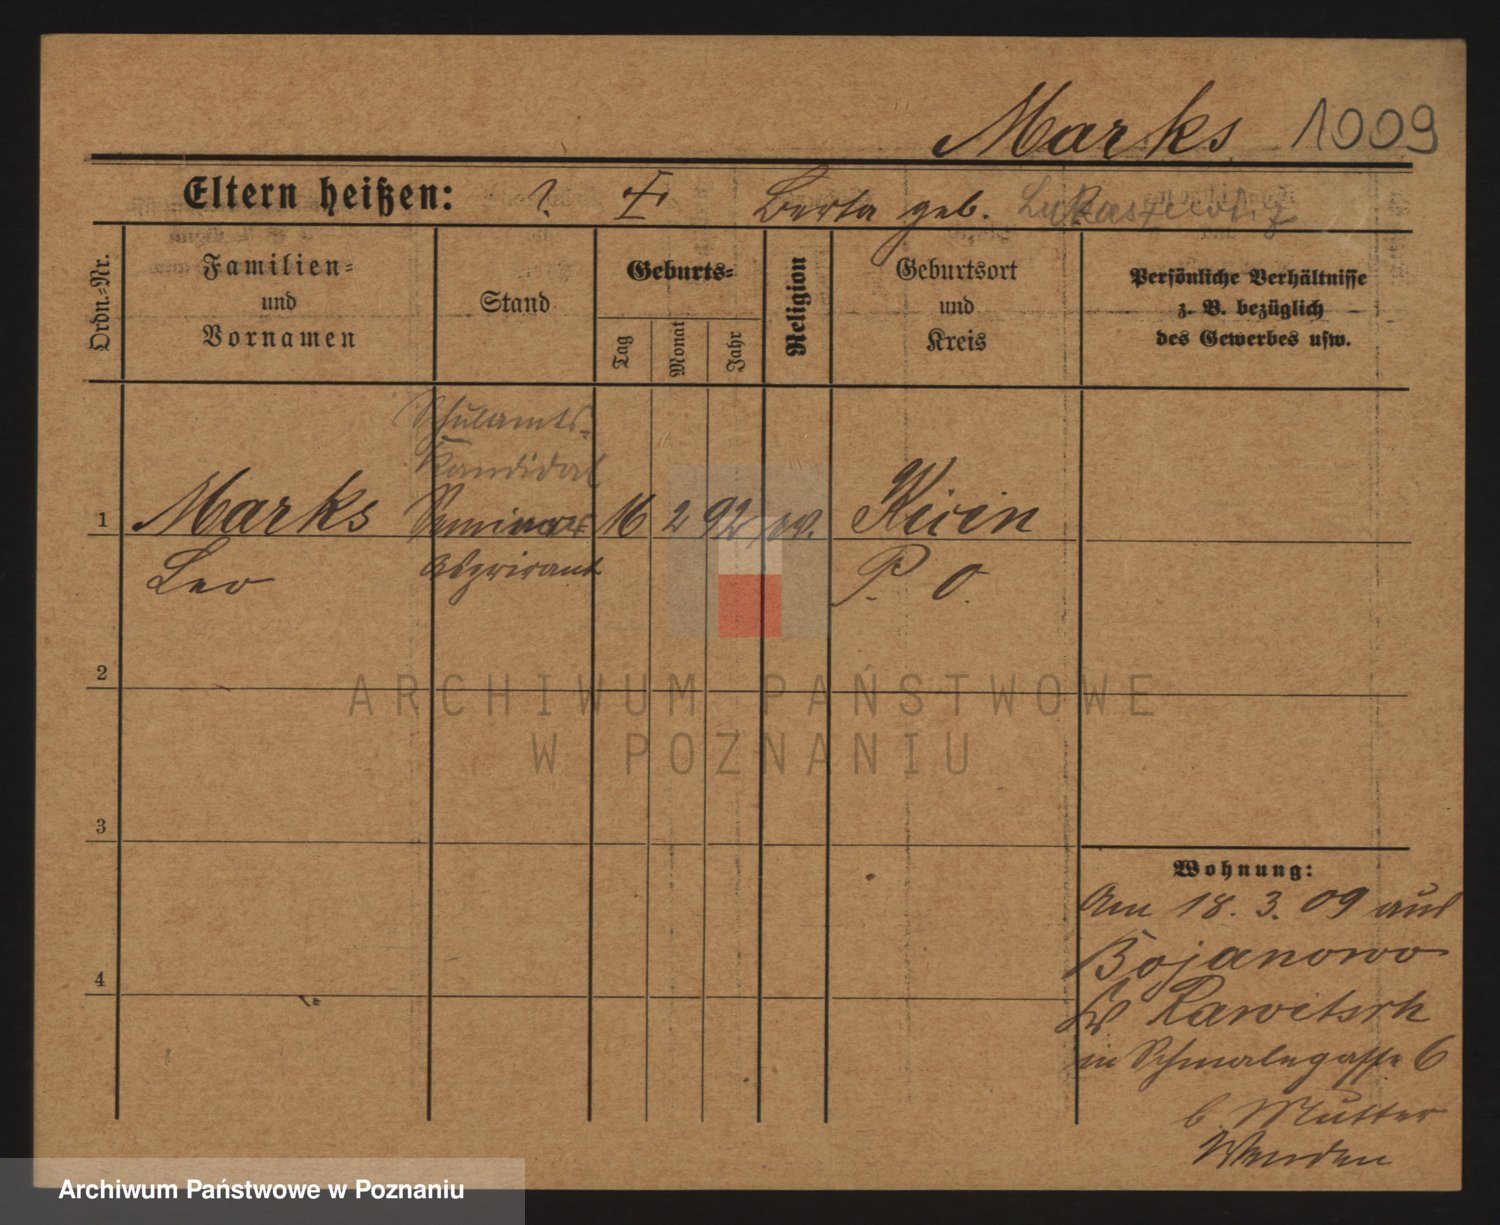 Marks 1009
Eltern heißen: ? Berta geb.
Ordn.=Nr.
Familien=
und
Vornamen
Stand
Geburts=
Tag
Monat
Jahr
Religion
Geburtsort
und
Kreis
Persönliche Verhältnisse
z. B. bezüglich
des Gewerbes usw.
Schulamts-
Kandidat
1 Marks Seminar 16 2 92 ev. Kicin
Leo Aspirant P. O.
2
3
4
Wohnung:
Am 18. 3. 09 aus
Bojanowo
Kr. Rawitsch
in Schmalegasse 6
b. Mutter
ARCHIWUM PAŃSTWOWE
W POZNANIU
Archiwum Państwowe w Poznaniu